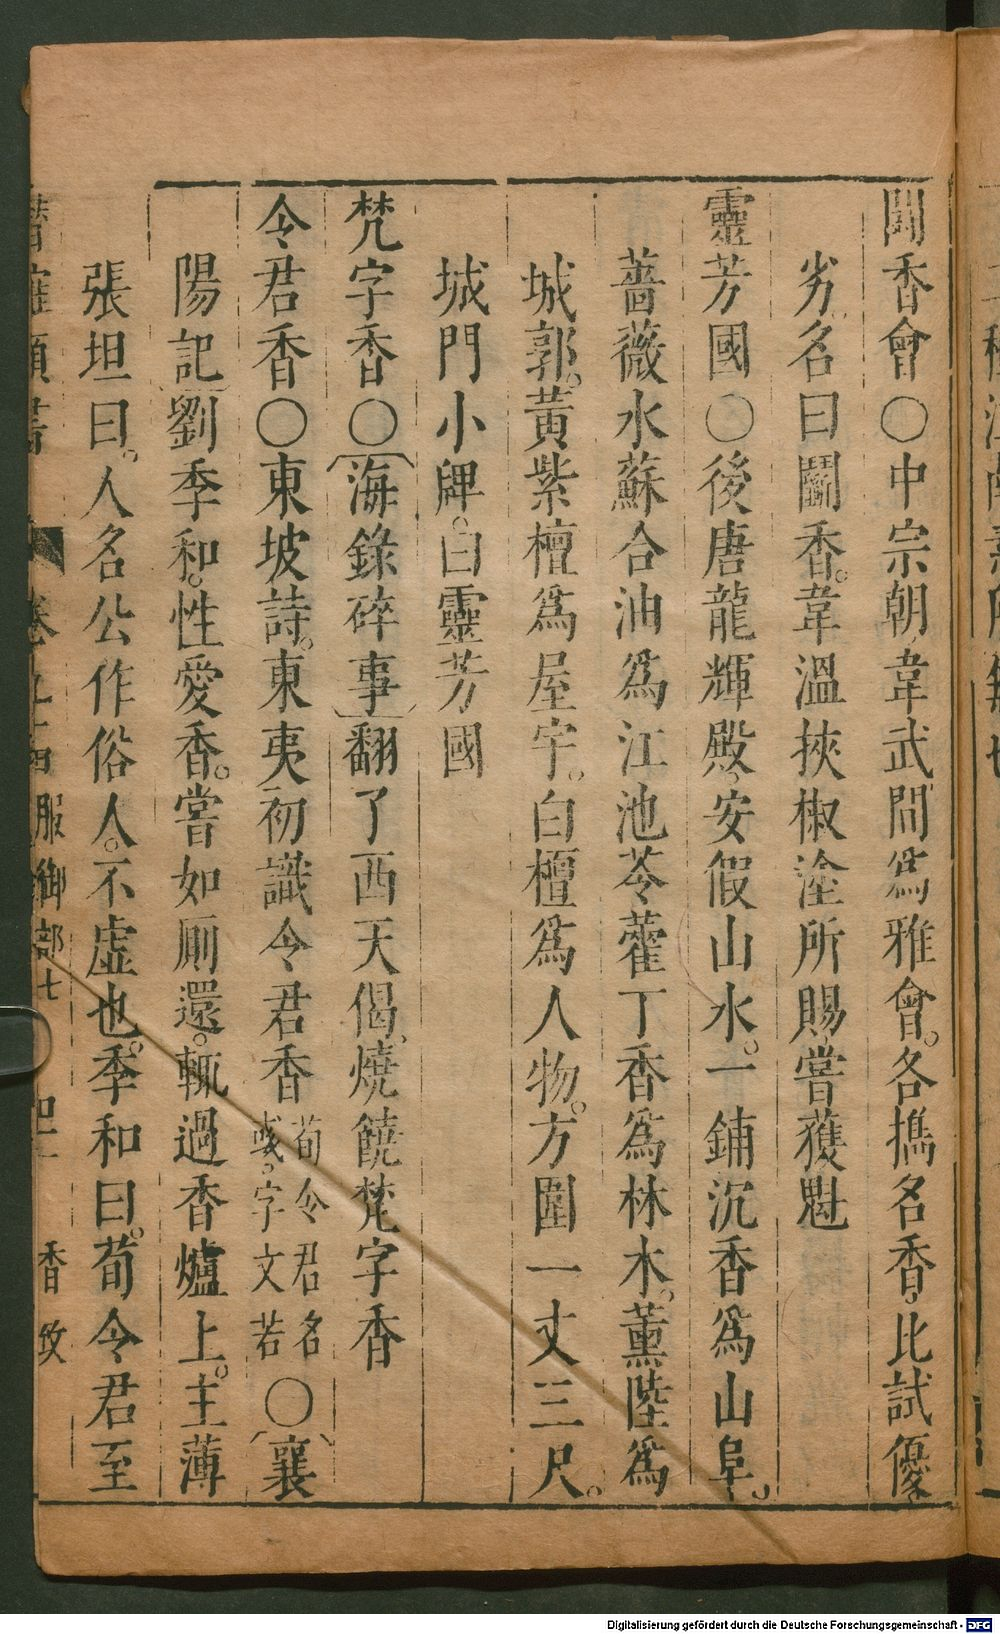 鬪香會〇中宗朝韋武間爲雅會。各攜名香。比試優
劣。名曰鬪香。韋溫挾椒塗所賜。嘗獲魁
靈芳國〇後唐龍輝殿。安假山水。一鋪沉香爲山阜。
薔薇水蘇合油爲江池苓藿丁香爲林木。薰陸爲
城郭。黃紫檀爲屋宇。白檀爲人物。方圍一丈三尺。
城門小牌。曰靈芳國
梵字香〇〔海錄碎事〕翻了西天偈。燒饒梵字香
令君香〇東坡詩。東夷初識令君香荀令君名
彧。字文若〇〔襄
陽記〕劉季和。性愛香。嘗如厠還。輒過香爐上。主薄
張坦曰。人名公作俗人。不虛也。季和曰。荀令君至
卷 服御部七 香 攷
Digitalisierung gefördert durch die Deutsche Forschungsgemeinschaft - DFG